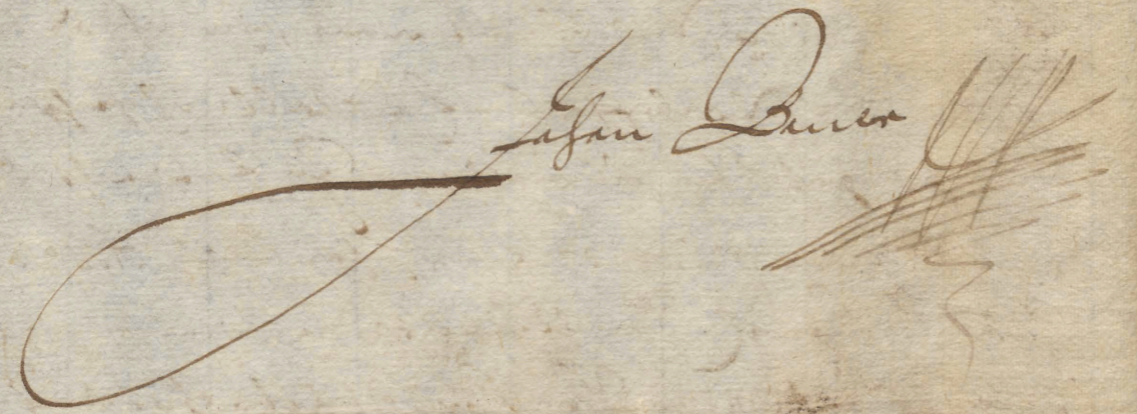 Johan Baner